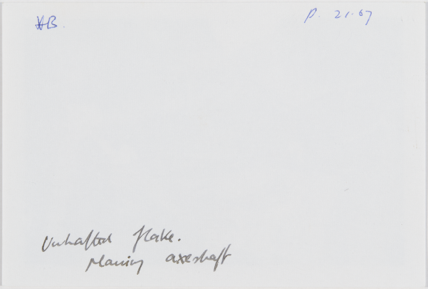 HB.
P. 21.67
Unhafted flake.
planing axeshaft